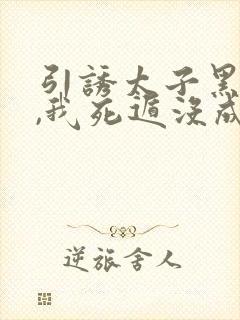 引誘太子黑
,我死遁没成
逆旅舍人